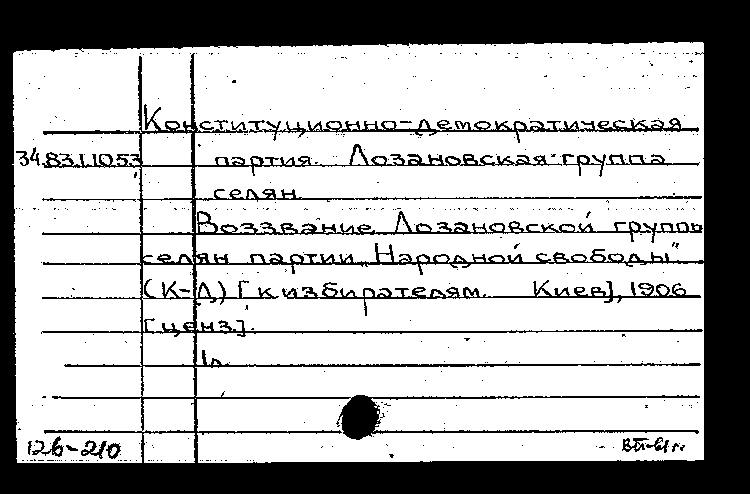 Конституционно-демократическая
34.83.1.1053 партия. Лозановская группа
селян
Воззвание Лозановской группы
селян партии „Народной свободы"
(К-Д) [к избирателям. Киев], 1906
[ценз.].
1л.
126-210